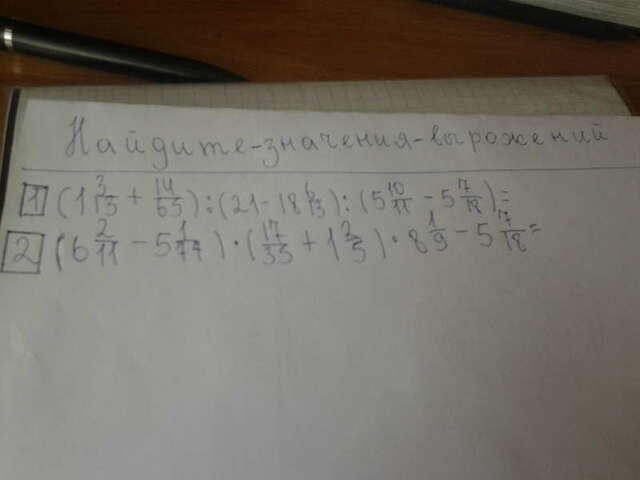 Найдите-значения-вырожений
1 (1 3/13 + 14/65) : (21 - 18 6/13) : (5 10/11 - 5 7/12) =
2 (6 2/11 - 5 1/77) · (17/35 + 1 2/5) · 8 1/9 - 5 7/18 =